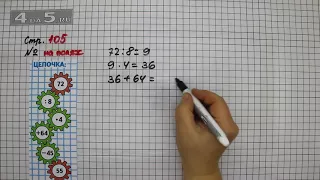 4 da 5.RU
Стр. 105
№2 на полях
ЦЕПОЧКА:
72
:8
·4
+64
−45
55
72:8=9
9·4=36
36+64=